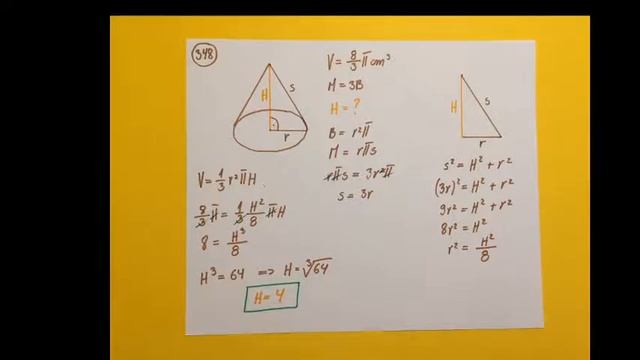 348
H
s
r
V = 8/3 π cm³
M = 3B
H = ?
B = r²π
M = rπs
rπs = 3r²π
s = 3r
H
s
r
s² = H² + r²
(3r)² = H² + r²
9r² = H² + r²
8r² = H²
r² = H²/8
V = 1/3 r²πH
8/3 π = 1/3 H²/8 πH
8 = H³/8
H³ = 64 => H = ³√64
H = 4